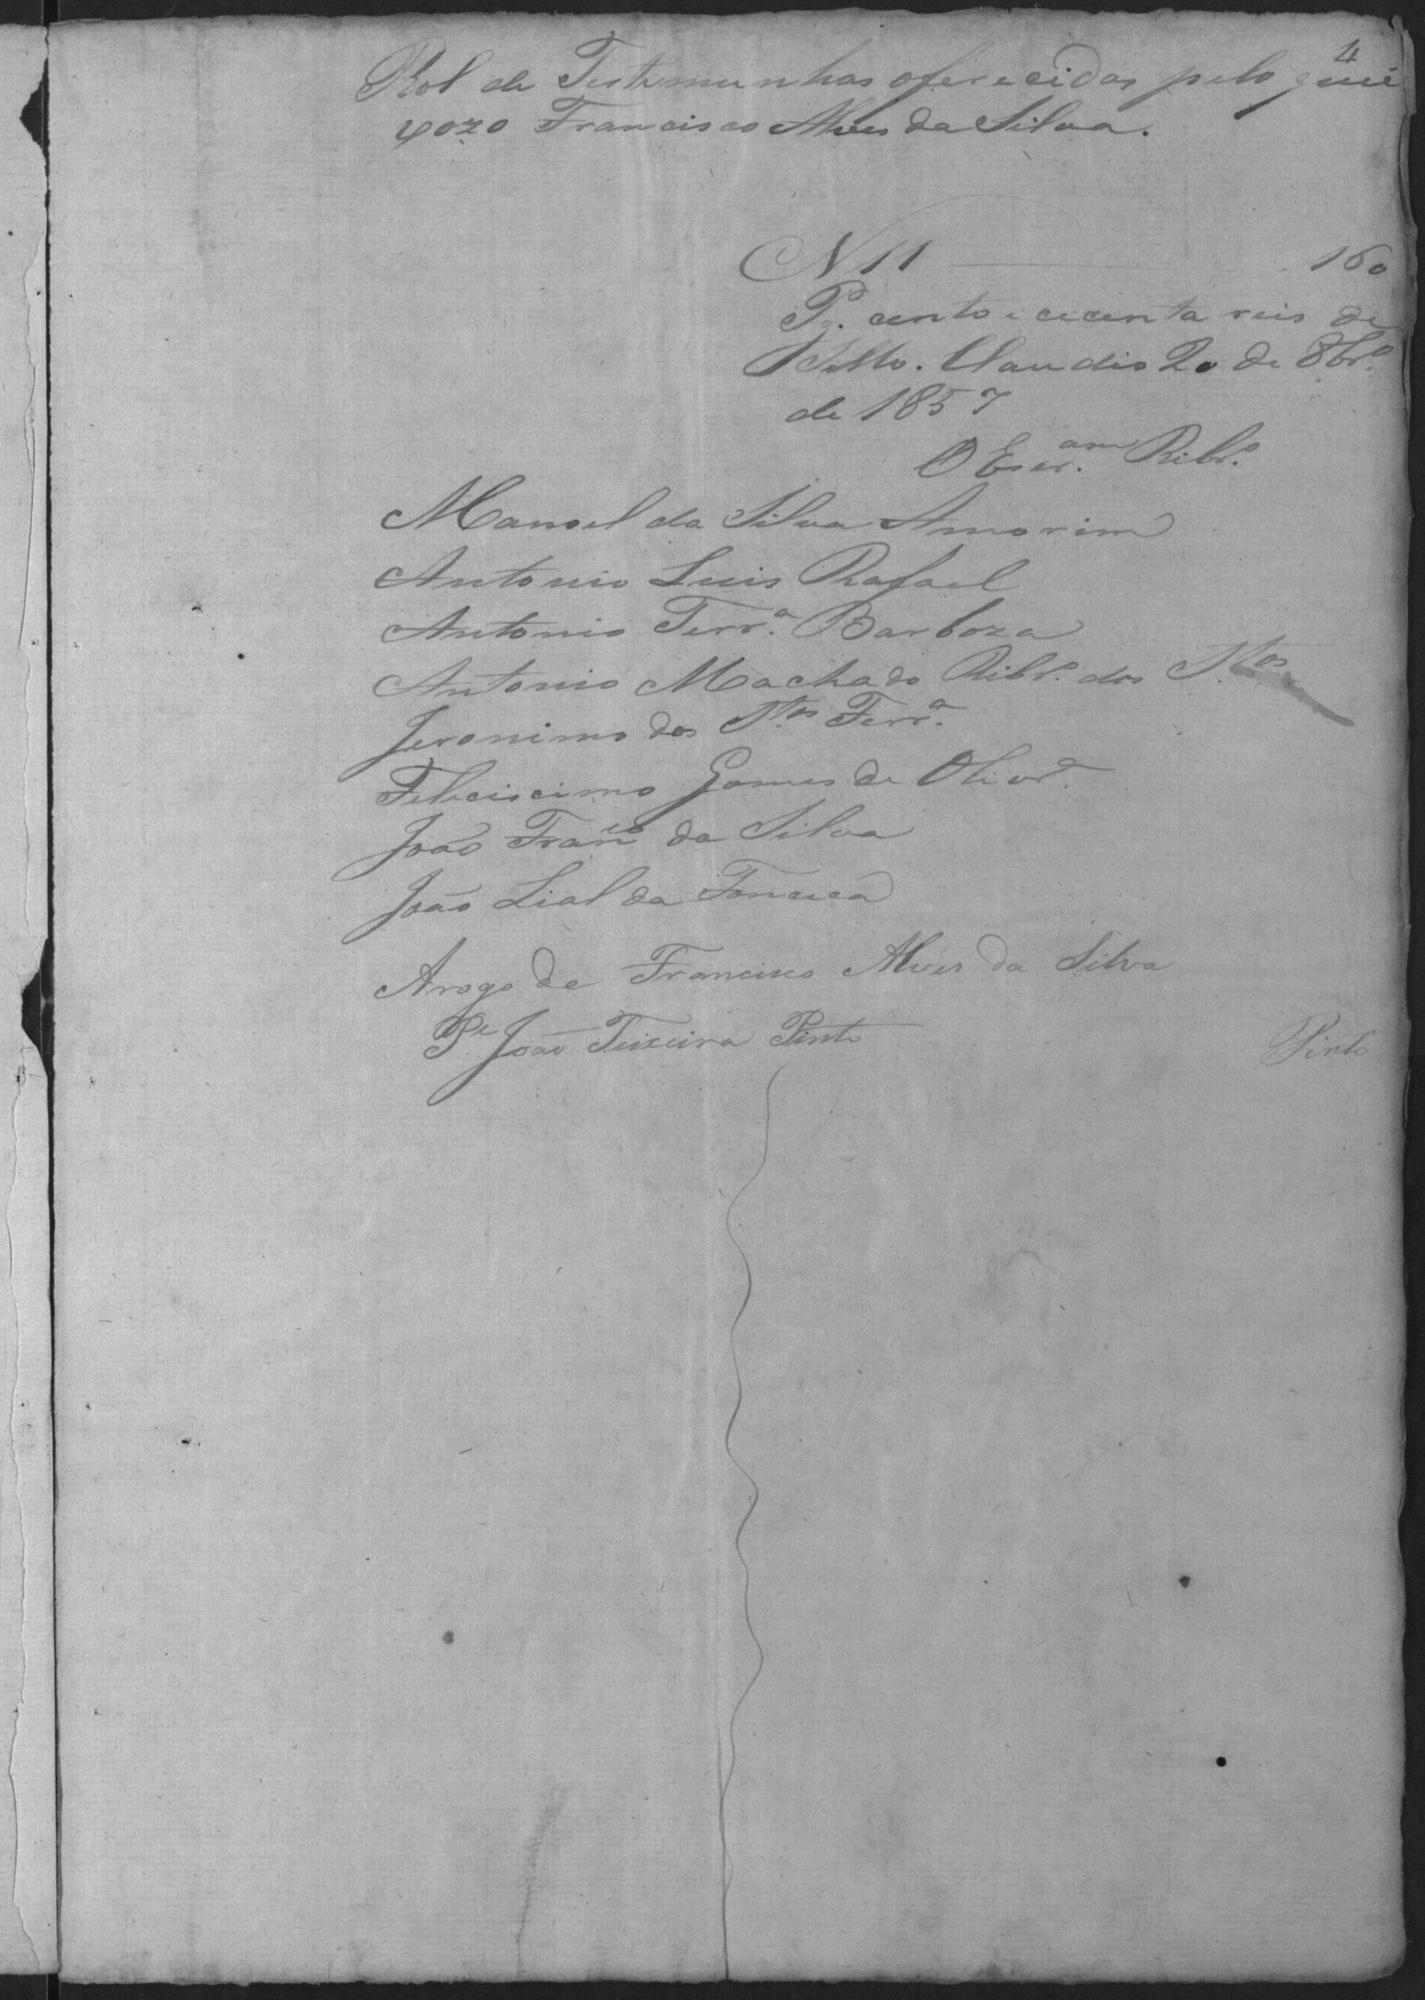 4
Rol de Testemunhas oferecidas pelo quei
xozo Francisco Alves da Silva.
N 11 160
Pg. cento e cecenta reis de
Sello. Claudio 20 de 8br.º
de 1857
O Escr.am Ribr.º
Manoel da Silva Amorim
Antonio Luis Rafael
Antonio Ferr.ª Barboza
Antonio Machado Ribr.º dos S.tos
Jeronimo dos S.tos Ferr.ª
Feliciscimo Gomes de Olivr.ª
João Fran.co da Silva
João Lial da Fonceca
Arogo de Francisco Alves da Silva
P.e João Teixeira Pinto
Pinto